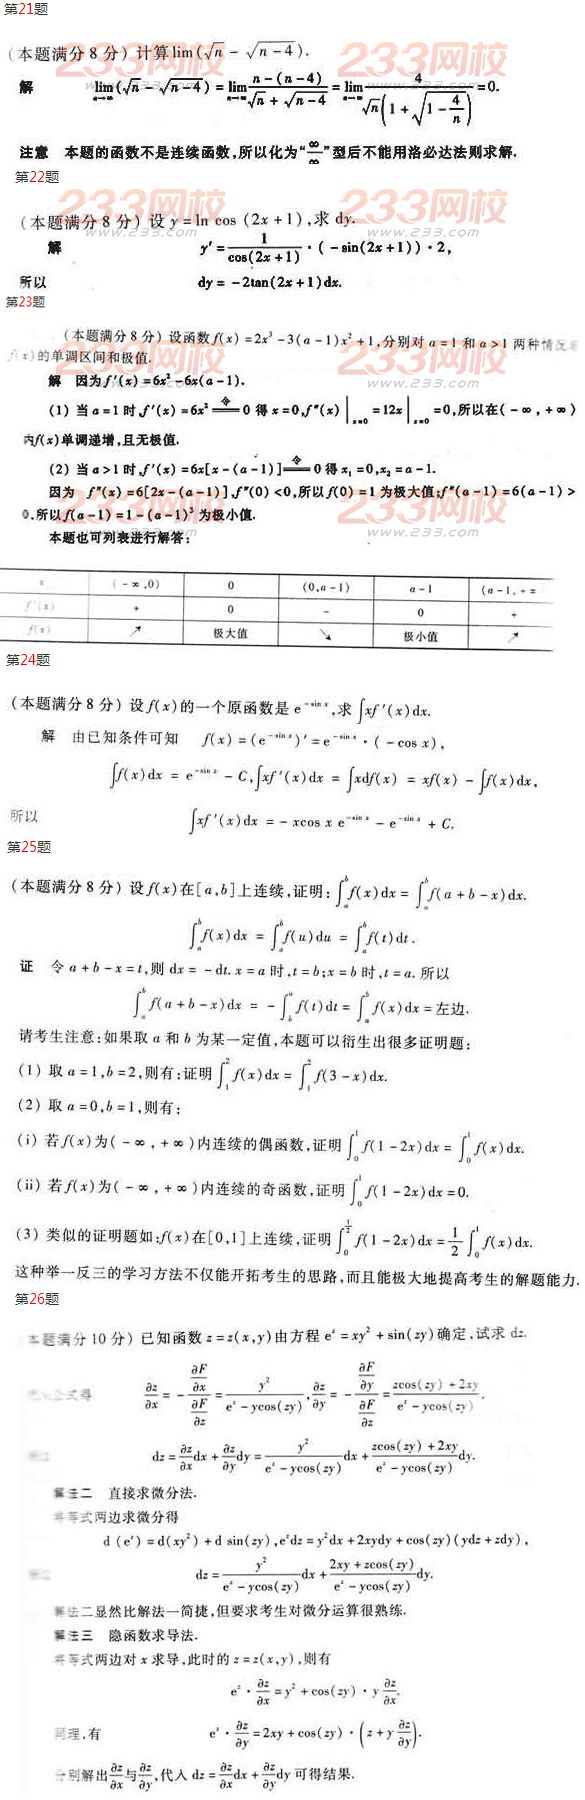 第21题
(本题满分8分) 计算lim(√n − √(n−4)).
解 lim(n→∞)(√n − √(n−4)) = lim(n→∞) (n−(n−4))/(√n + √(n−4)) = lim(n→∞) 4/(√n(1+√(1−4/n))) = 0.
注意 本题的函数不是连续函数,所以化为“∞/∞”型后不能用洛必达法则求解.
第22题
(本题满分8分) 设 y = ln cos (2x+1),求 dy.
解 y′ = 1/cos(2x+1) · (−sin(2x+1)) · 2,
所以 dy = −2tan(2x+1)dx.
第23题
(本题满分8分) 设函数f(x)=2x³−3(a−1)x²+1,分别对 a=1 和 a>1 两种情况
f(x)的单调区间和极值.
解 因为f′(x)=6x²−6x(a−1).
(1) 当 a=1 时,f′(x)=6x² =令= 0 得 x=0,f″(x)|x=0 = 12x|x=0 = 0,所以在(−∞,+∞)
内f(x)单调递增,且无极值.
(2) 当 a>1 时,f′(x)=6x[x−(a−1)] =令= 0 得 x₁=0,x₂=a−1.
因为 f″(x)=6[2x−(a−1)],f″(0)<0,所以f(0)=1为极大值;f″(a−1)=6(a−1)>
0,所以f(a−1)=1−(a−1)³为极小值.
本题也可列表进行解答:
x (−∞,0) 0 (0,a−1) a−1 (a−1,+∞
f′(x) + 0 − 0 +
f(x) ↗ 极大值 ↘ 极小值 ↗
第24题
(本题满分8分) 设f(x)的一个原函数是 e^(−sin x),求 ∫xf′(x)dx.
解 由已知条件可知 f(x)=(e^(−sin x))′=e^(−sin x)·(−cos x),
∫f(x)dx = e^(−sin x) − C,∫xf′(x)dx = ∫xdf(x) = xf(x) − ∫f(x)dx,
所以 ∫xf′(x)dx = −xcos x e^(−sin x) − e^(−sin x) + C.
第25题
(本题满分8分) 设f(x)在[a,b]上连续,证明:∫ₐᵇ f(x)dx = ∫ₐᵇ f(a+b−x)dx.
∫ₐᵇ f(x)dx = ∫ₐᵇ f(u)du = ∫ₐᵇ f(t)dt.
证 令 a+b−x=t,则 dx=−dt. x=a 时,t=b;x=b 时,t=a. 所以
∫ₐᵇ f(a+b−x)dx = −∫_b^a f(t)dt = ∫ₐᵇ f(x)dx = 左边.
请考生注意:如果取 a 和 b 为某一定值,本题可以衍生出很多证明题:
(1) 取 a=1,b=2,则有:证明 ∫₁² f(x)dx = ∫₁² f(3−x)dx.
(2) 取 a=0,b=1,则有:
(i) 若f(x)为(−∞,+∞)内连续的偶函数,证明 ∫₀¹ f(1−2x)dx = ∫₀¹ f(x)dx.
(ii) 若f(x)为(−∞,+∞)内连续的奇函数,证明 ∫₀¹ f(1−2x)dx = 0.
(3) 类似的证明题如:f(x)在[0,1]上连续,证明 ∫₀^(1/2) f(1−2x)dx = 1/2 ∫₀¹ f(x)dx.
这种举一反三的学习方法不仅能开拓考生的思路,而且能极大地提高考生的解题能力.
第26题
本题满分10分) 已知函数 z=z(x,y)由方程 e^z=xy²+sin(zy)确定,试求 dz.
公式得 ∂z/∂x = −(∂F/∂x)/(∂F/∂z) = y²/(e^z−ycos(zy)), ∂z/∂y = −(∂F/∂y)/(∂F/∂z) = (zcos(zy)+2xy)/(e^z−ycos(zy)).
dz = ∂z/∂x dx + ∂z/∂y dy = y²/(e^z−ycos(zy)) dx + (zcos(zy)+2xy)/(e^z−ycos(zy)) dy.
解法二 直接求微分法.
将等式两边求微分得
d(e^z)=d(xy²)+d sin(zy),e^z dz=y²dx+2xydy+cos(zy)(ydz+zdy),
dz = y²/(e^z−ycos(zy)) dx + (2xy+zcos(zy))/(e^z−ycos(zy)) dy.
解法二显然比解法一简捷,但要求考生对微分运算很熟练.
解法三 隐函数求导法.
将等式两边对 x 求导,此时的 z=z(x,y),则有
e^z · ∂z/∂x = y² + cos(zy) · y ∂z/∂x.
同理,有 e^z · ∂z/∂y = 2xy + cos(zy) · (z + y ∂z/∂y).
分别解出 ∂z/∂x 与 ∂z/∂y,代入 dz = ∂z/∂x dx + ∂z/∂y dy 可得结果.
233网校
www.233.com